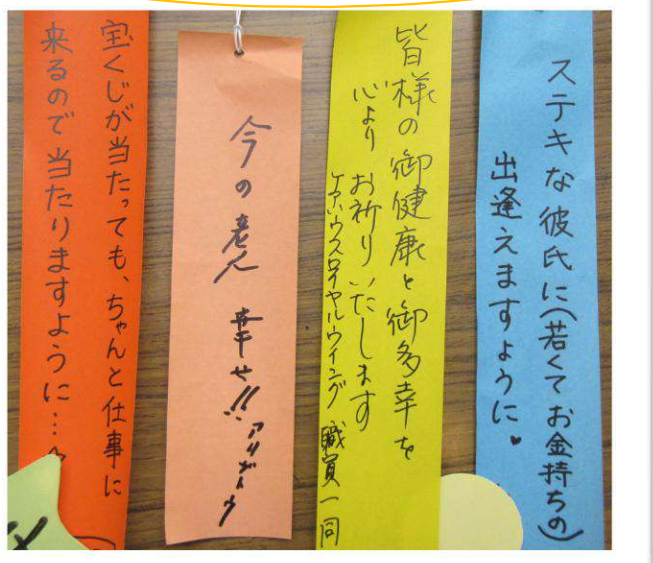 ステキな彼氏に(若くてお金持ちの)
出逢えますように♥
皆様の御健康と御多幸を
心よりお祈りいたします
ケアハウスロイヤルウイング 職員一同
今の老人 幸せ!! アリガトウ
宝くじが当たっても、ちゃんと仕事に
来るので当たりますように…